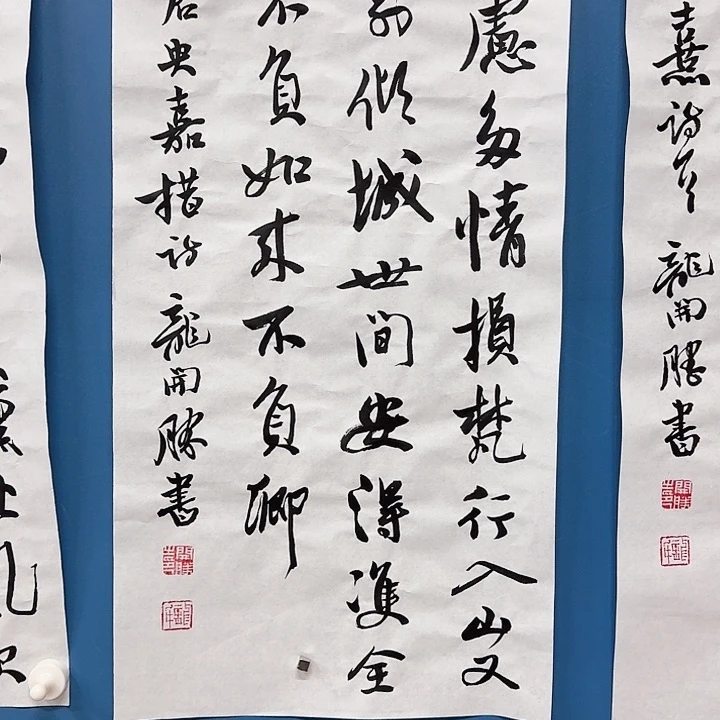 熹詩
龍開勝書
慮多情損梵行入山又
別傾城世間安得雙全
不負如来不負卿
央嘉措詩龍開勝書